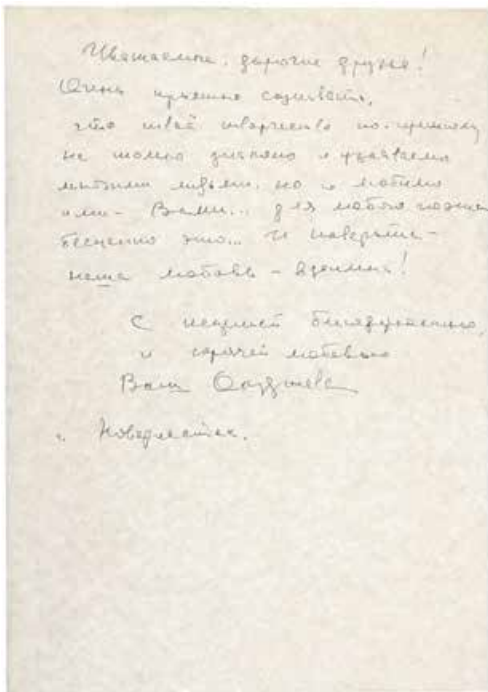 Уважаемые, дорогие друзья!
Очень приятно сознавать,
что твоё творчество по-прежнему
не только и узнаваемо
многими людьми, но и любимо
ими - Вами... для любого поэта
бесценно это... И поверьте -
наша любовь - взаимна!
С искренней благодарностью,
и горячей любовью
Ваш
г.